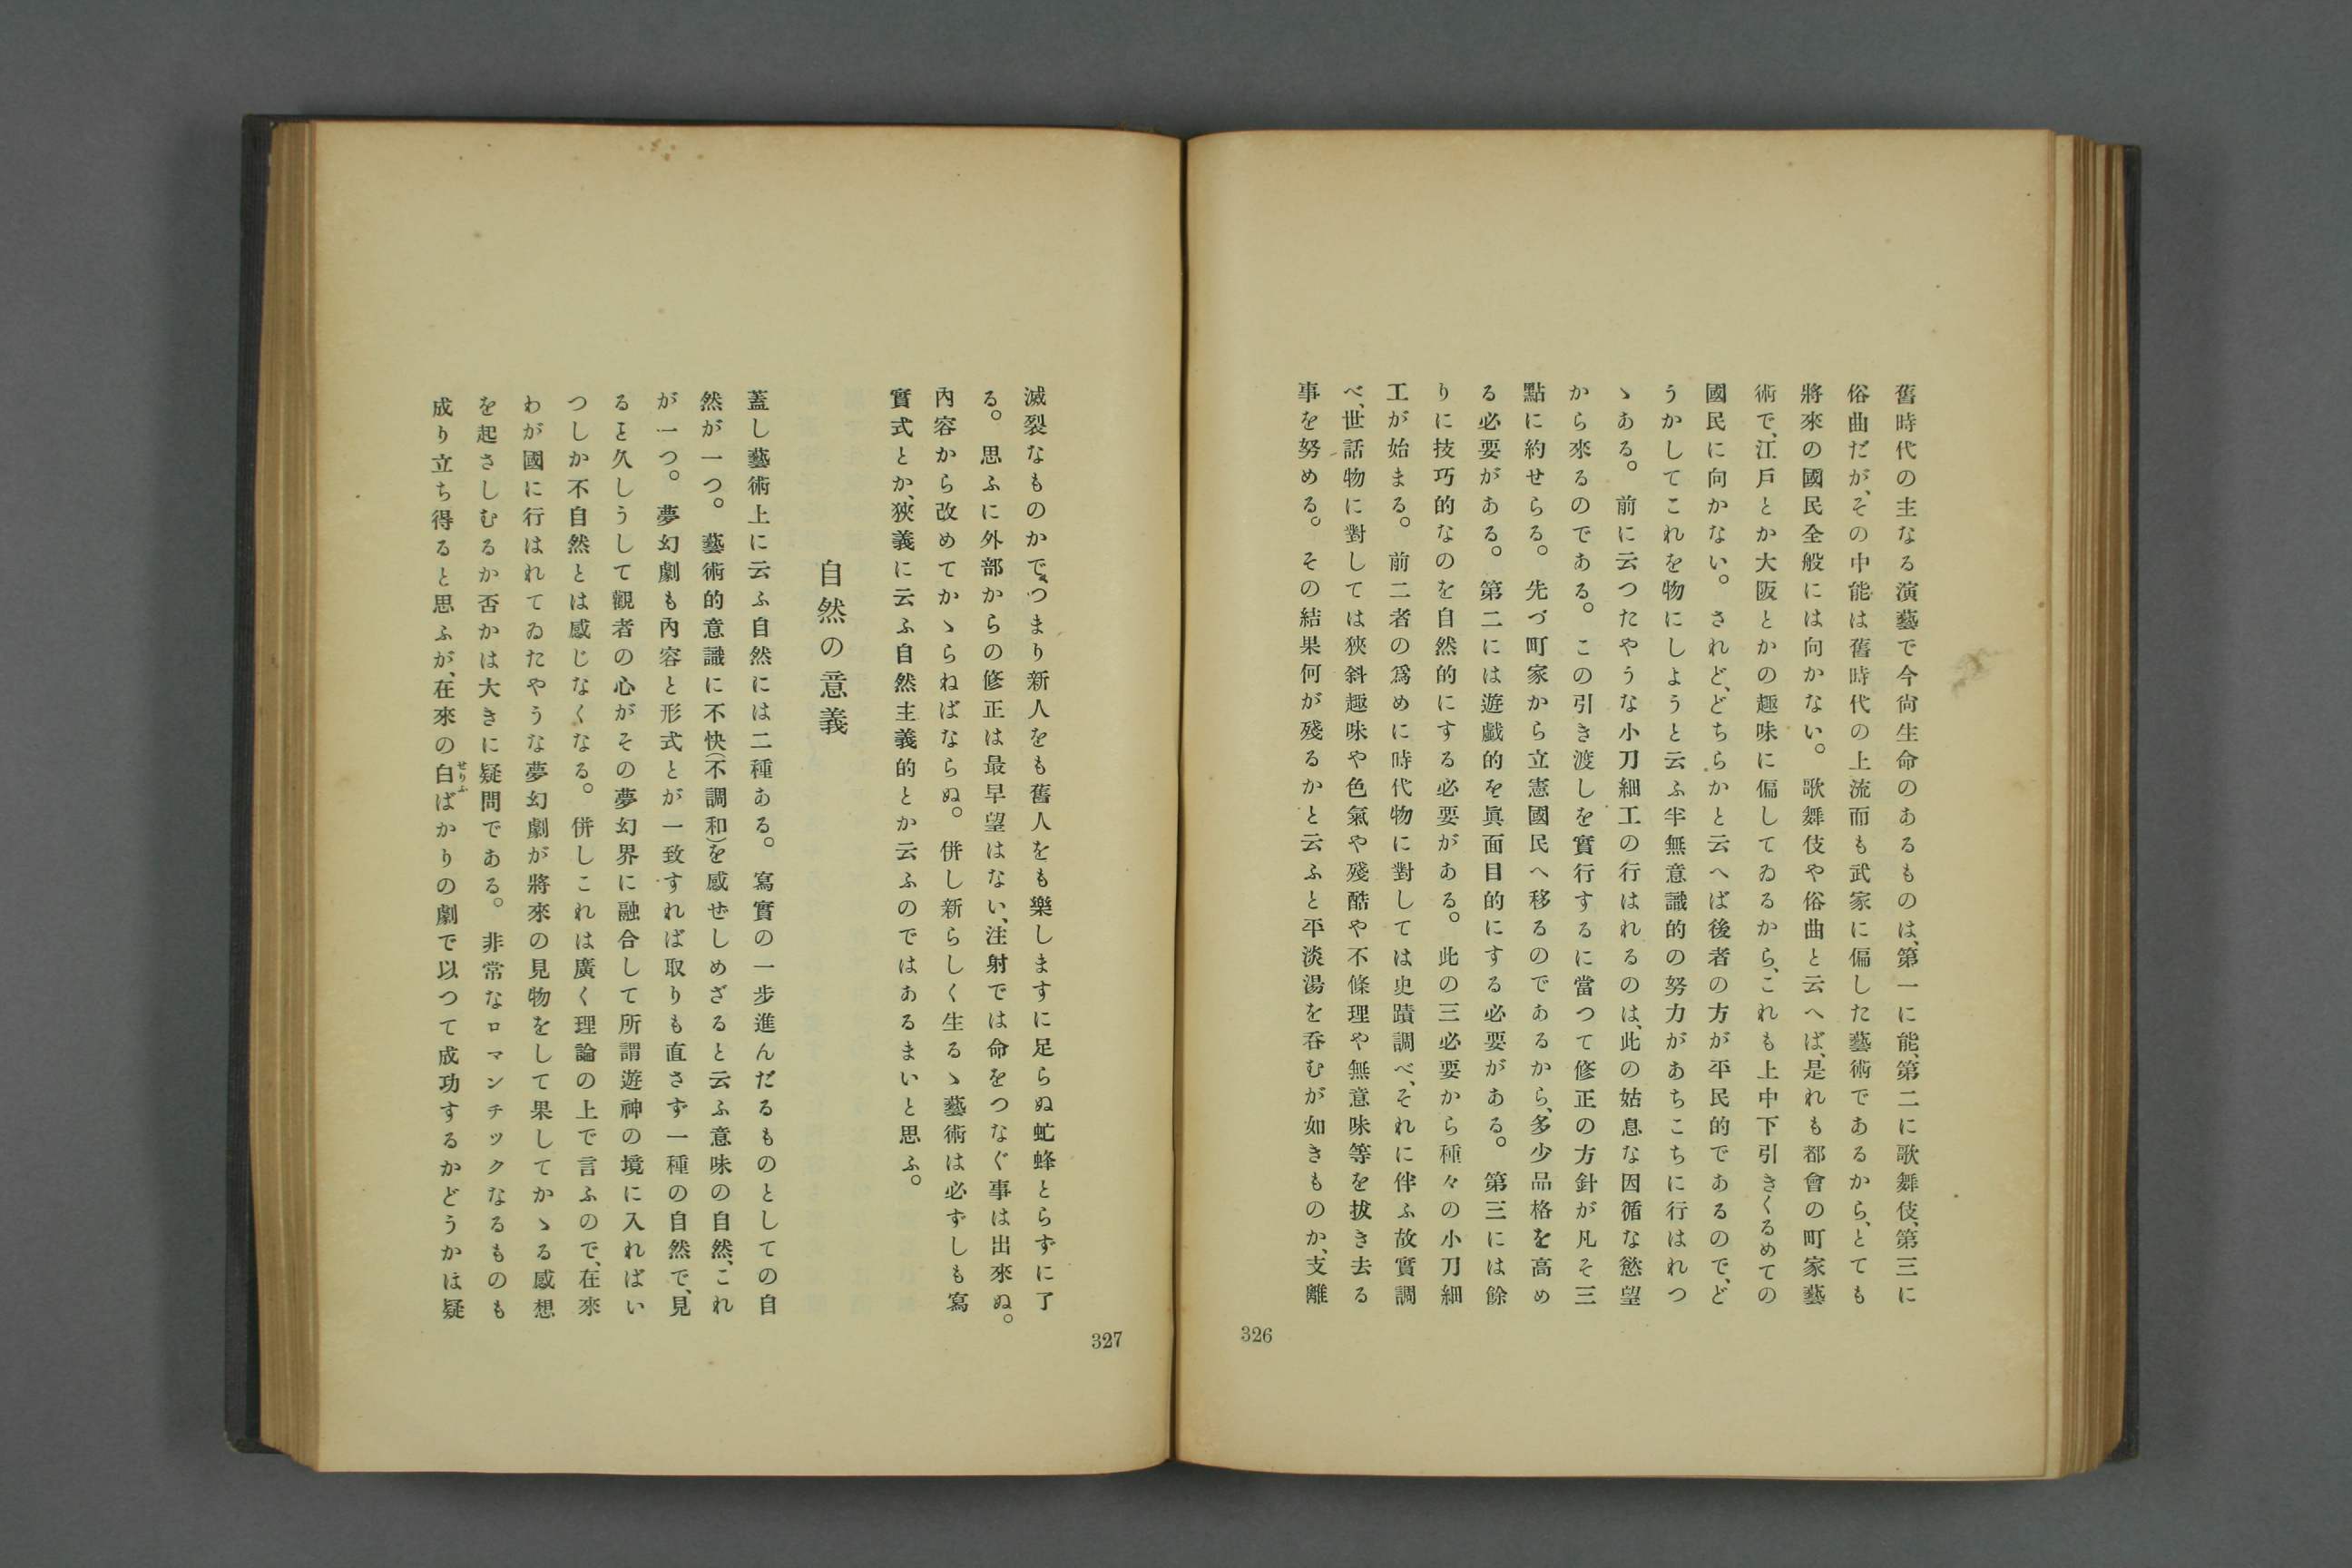 舊時代の主なる演藝で今尙生命のあるものは、第一に能、第二に歌舞伎、第三に
俗曲だが、その中能は舊時代の上流而も武家に偏した藝術であるから、とても
將來の國民全般には向かない。歌舞伎や俗曲と云へば、是れも都會の町家藝
術で、江戶とか大阪とかの趣味に偏してゐるから、これも上中下引きくるめての
國民に向かない。されど、どちらかと云へば後者の方が平民的であるので、ど
うかしてこれを物にしようと云ふ半無意識的の努力があちこちに行はれつ
ゝある。前に云つたやうな小刀細工の行はれるのは、此の姑息な因循な慾望
から來るのである。この引き渡しを實行するに當つて修正の方針が凡そ三
點に約せらる。先づ町家から立憲國民へ移るのであるから、多少品格を高め
る必要がある。第二には遊戲的を眞面目的にする必要がある。第三には餘
りに技巧的なのを自然的にする必要がある。此の三必要から種々の小刀細
工が始まる。前二者の爲めに時代物に對しては史蹟調べ、それに伴ふ故實調
べ、世話物に對しては狹斜趣味や色氣や殘酷や不條理や無意味等を拔き去る
事を努める。その結果何が殘るかと云ふと平淡湯を呑むが如きものか、支離
326
滅裂なものかで、つまり新人をも舊人をも樂しますに足らぬ虻蜂とらずに了
る。思ふに外部からの修正は最早望はない、注射では命をつなぐ事は出來ぬ。
內容から改めてかゝらねばならぬ。併し新らしく生るゝ藝術は必ずしも寫
實式とか、狹義に云ふ自然主義的とか云ふのではあるまいと思ふ。
自然の意義
蓋し藝術上に云ふ自然には二種ある。寫實の一步進んだるものとしての自
然が一つ。藝術的意識に不快(不調和)を感ぜしめざると云ふ意味の自然、これ
が一つ。夢幻劇も內容と形式とが一致すれば取りも直さず一種の自然で、見
ると久しうして觀者の心がその夢幻界に融合して所謂遊神の境に入ればい
つしか不自然とは感じなくなる。併しこれは廣く理論の上で言ふので、在來
わが國に行はれてゐたやうな夢幻劇が將來の見物をして果してかゝる感想
を起さしむるか否かは大きに疑問である。非常なロマンチックなるものも
成り立ち得ると思ふが、在來の白せりふばかりの劇で以つて成功するかどうかは疑
327